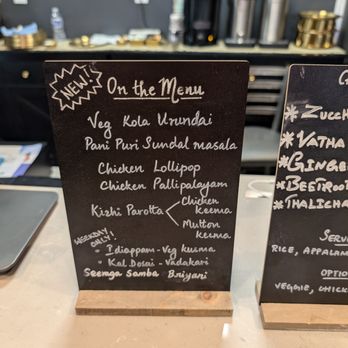 NEW!
On the Menu
Veg Kola Urundai
Pani Puri Sundal masala
Chicken Lollipop
Chicken Pallipalayam
Kizhi Parotta
Chicken keema
Mutton keema
WEEKDAY ONLY!
• Idiappam - Veg kurma
• Kal Dosai - Vadakari
Seeraga Samba Briyani
* ZUCCH
* VATHA
* GINGE
* BEETROOT
* THALICHA
SERV
RICE, APPALAM
OPTIO
VEGGIE, CHICK